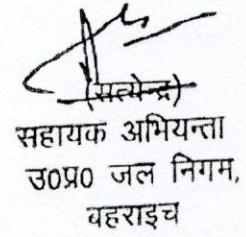 (सत्येन्द्र)
सहायक अभियन्ता
उ0प्र0 जल निगम,
बहराइच